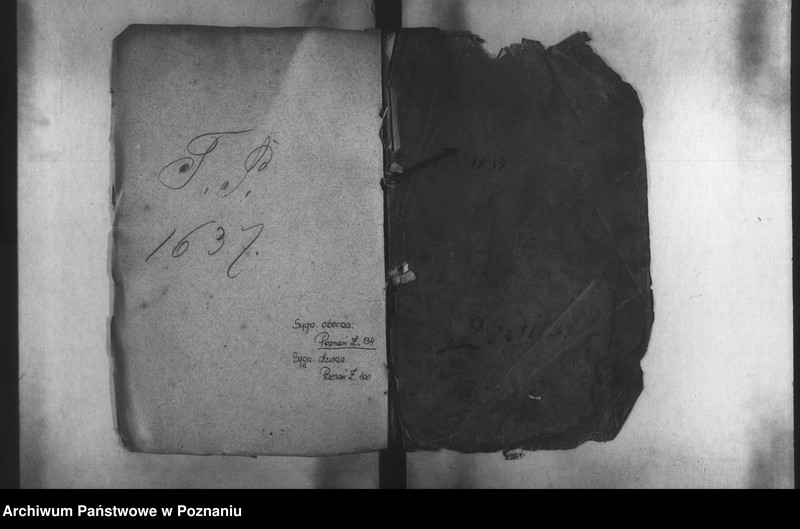 T. P.
1637.
Sygn. obecna:
Poznań Z. 134
Sygn. dawna
Poznań Z 100
1637
Archiwum Państwowe w Poznaniu